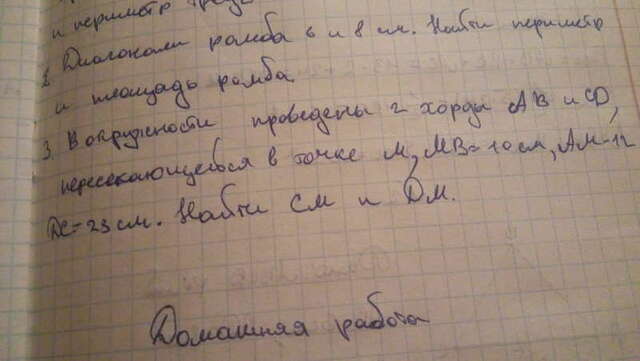 и периметр
2. Диагонали ромба 6 и 8 см. Найти периметр
и площадь ромба.
3. В окружности проведены 2 хорды АВ и СD,
пересекающиеся в точке М, МВ=10 см, АМ=12
DC=23 см. Найти СМ и DM.
Домашняя работа